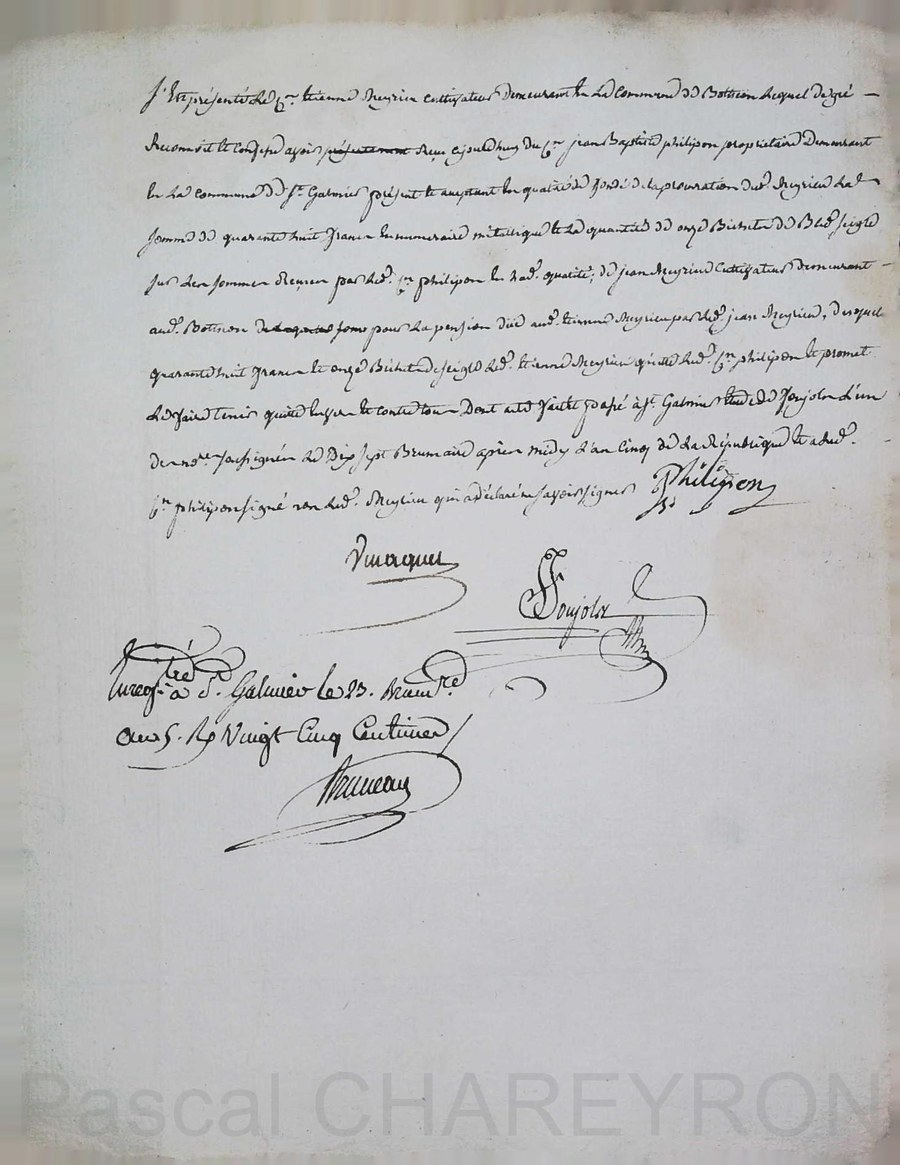 S'est présenté le Cn. Etienne Meyrieu cultivateur demeurant en la commune de Bothéon lequel de gré
Reconnoit et confesse avoir présentement Reçu ejourd'huy du Cn. jean Baptiste philipon proprietaire demeurant
en la commune de St. Galmier présent et acceptant en qualité de fondé de la procuration dud. Meyrieu la
somme de quarante huit francs en numeraire métallique et la quantité de onze Bichets de Bled seigle
sur les sommes Reçues par led. Cn. philipon en lad. qualité, de jean Meyrieu cultivateur demeurant
aud. Bothéon pour la pension düe aud. Etienne Meyrieu par led. jean Meyrieu, desquels
quarante huit francs et onze Bichets de seigle led. Etienne Meyrieu quitte led. Cn. philipon et promet
le faire tenir quitte envers et contre tous Dont acte fait et passé à St. Galmier étude de Poujolx l'un
des nores. soussignés le Dix sept Brumaire après midy l'an Cinq de la République et a led.
Cn. philipon signé non led. Meyrieu qui a déclaré ne savoir signer
Philipon
Poujolx
Enregtré à St. Galmier le 23. Brumre
an 5. R Vingt Cinq Centimes
Bruneau
Pascal CHAREYRON